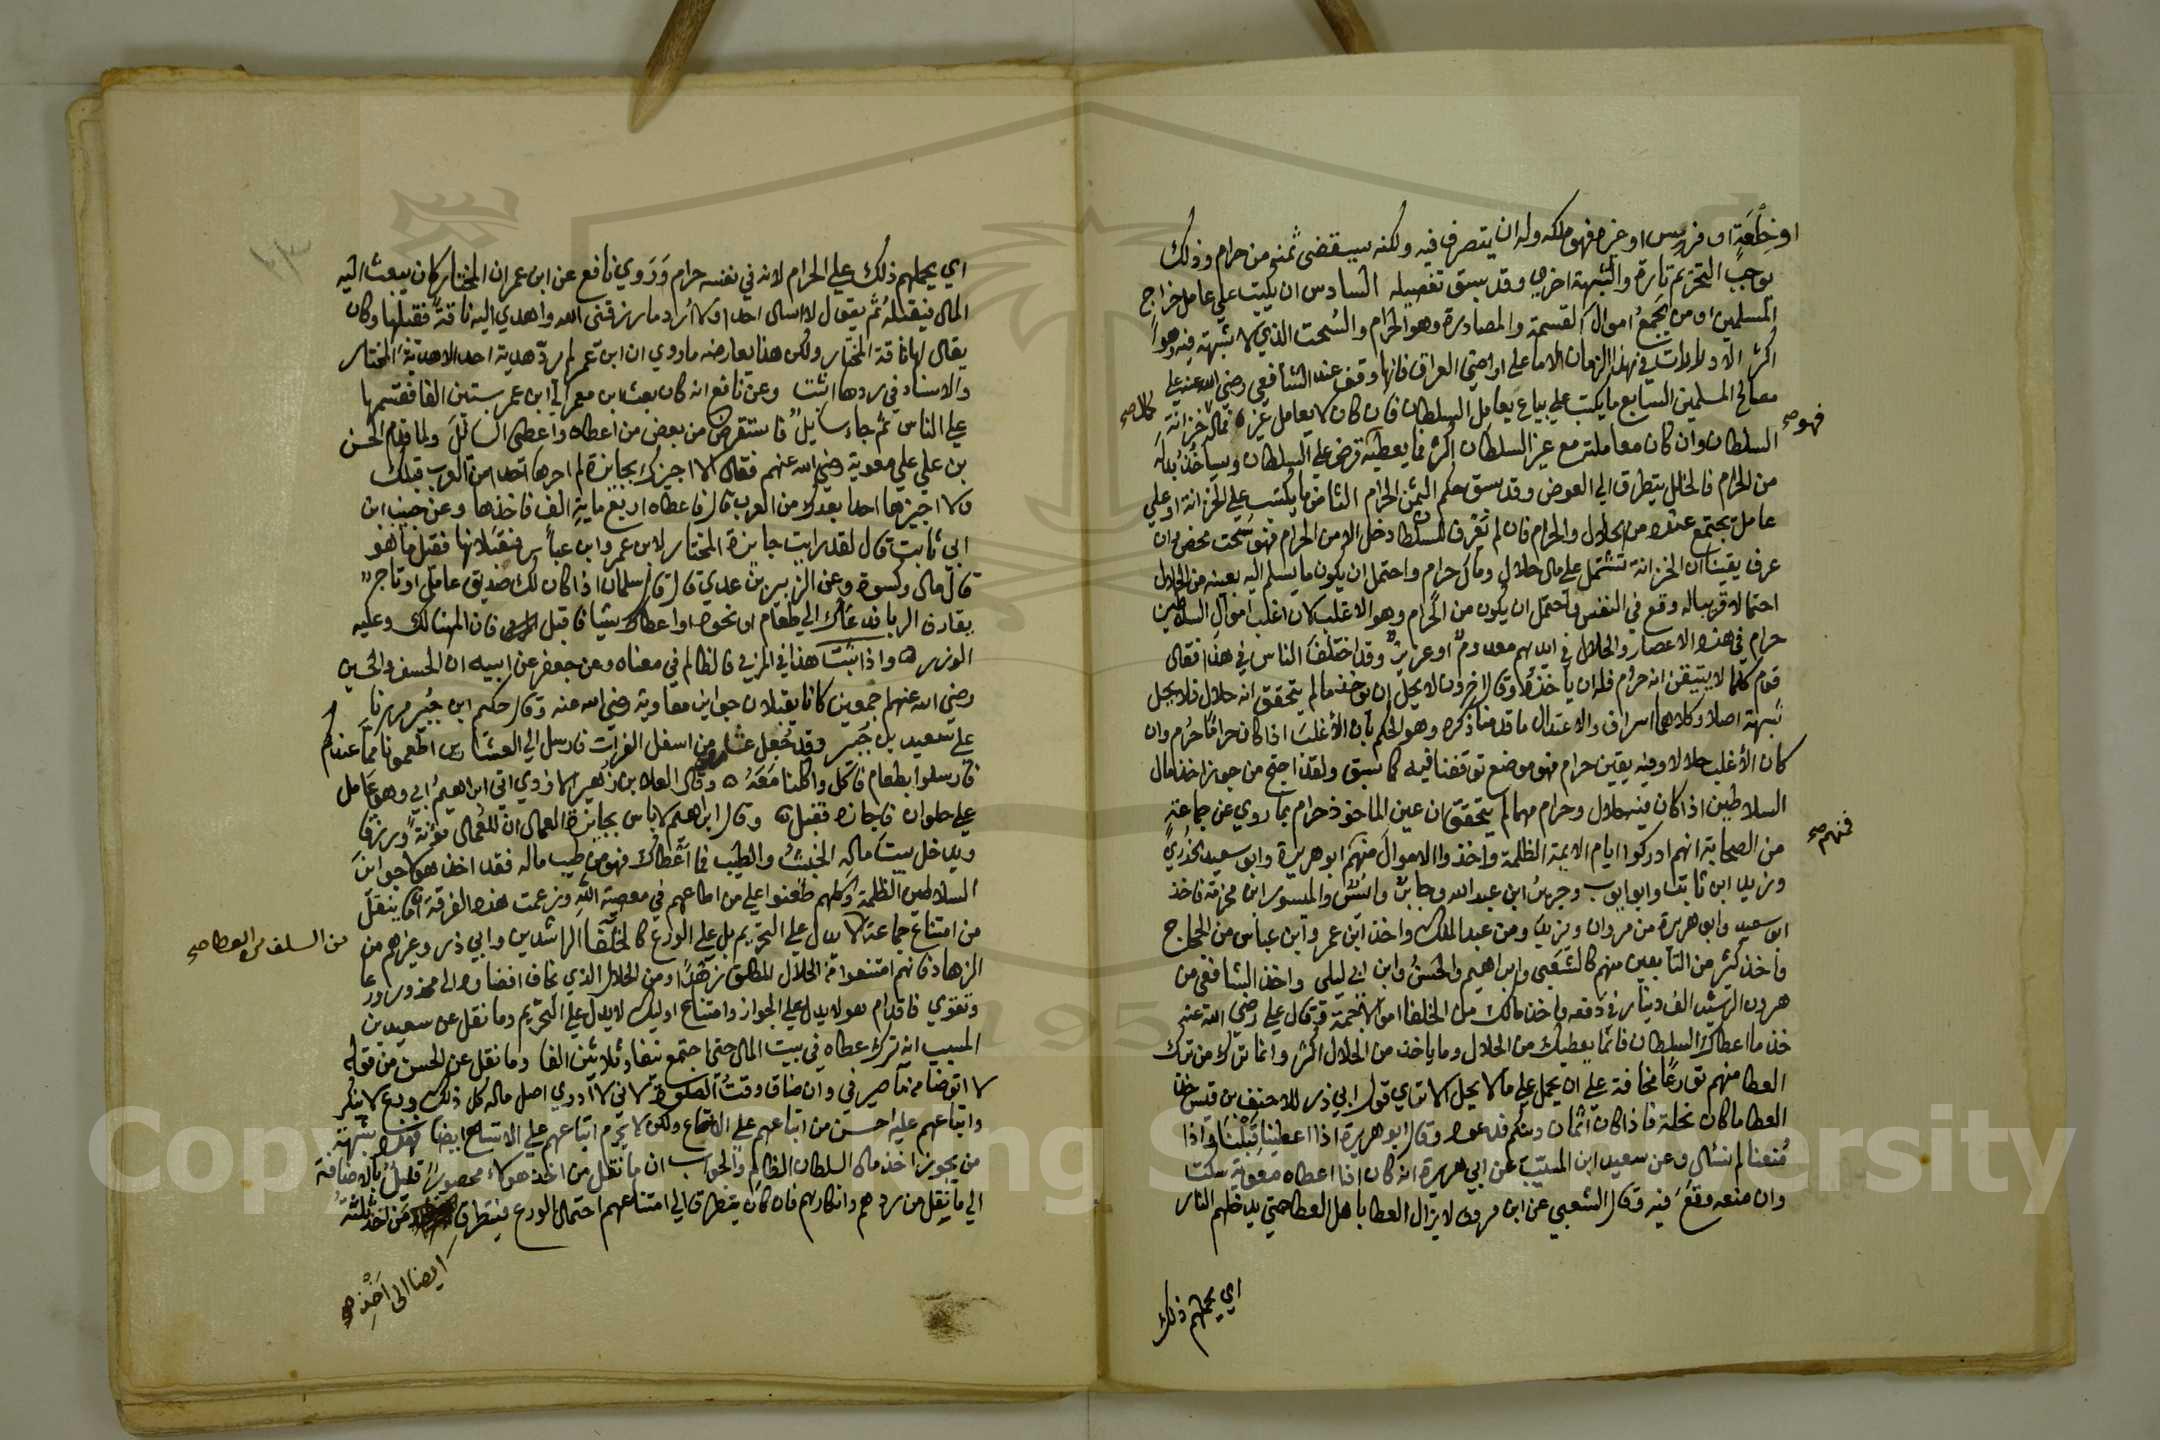 او خِلْعَة او فرس او غيره فهو ملكه وله ان يتصرف فيه ولكنه سيقضى ثمنه من حرام وذلك
يوجب التحريم تارة والشبهة اخري وقد سبق تفصيله السادس ان يكتب علي عامل خراج
المسلمين او من يجمع اموال القسمة والمصادرة وهو الحرام والسُحت الذي لا شبهة فيه وهو
اكثر الادرارات في هذا الزمان الا ما علي اراضي العراق فانها وقف عند الشافعي رضي الله عنه علي
مصالح المسلمين السابع ما يكتب علي بياع يعامل السلطان فان كان لا يعامل غيره فماله خزانة
كمال صح
السلطان وان كان معاملته مع غير السلطان اكثر فما يعطيه قرض علي السلطان وسياخذ بدله
فهو صح
من الحرام فالخلل يتطرق الي العوض وقد سبق حكم الثمن الحرام الثامن ما يكتب علي الخزانة او علي
عامل يجتمع عنده من الحلال والحرام فان لم يُعْرف للسلطان دخل الا من الحرام فهو سحت محض وان
عرف يقينا ان الخزانة تشتمل علي مال حلال ومال حرام واحتمل ان يكون ما يسلم اليه بعينه من الحلال
احتمالا قريبا له وقع في النفس واحتمل ان يكون من الحرام وهو الاغلب لان اغلب اموال السلاطين
حرام في هذه الاعصار والحلال في ايديهم معدوم او عزيز وقد اختلف الناس في هذا فقال
قوم كلما لا يتيقن انه حرام فله ان ياخذه وقال اخرون لا يحل ان يوخذ ما لم يتحقق انه حلال فلا يحل
شبهة اصلا وكلاهما اسراف والاعتدال ما قدمنا ذكره وهو الحكم بان الأغلب اذا كان حراما حرم وان
كان الأغلب حلالا وفيه يقين حرام فهو موضع توقفنا فيه كما سبق ولقد احتج من جوز اخذ مال
السلاطين اذا كان فيه حلال وحرام مهما لم يتحقق ان عين الماخوذ حرام بما روي عن جماعة
من الصحابة انهم ادركوا ايام الايمة الظلمة واخذوا الاموال منهم ابو هريرة وابو سعيد الخدري
فمنهم صح
وزيد ابن ثابت وابو ايوب وجرير ابن عبد الله وجابر وانس والمسور ابن مخرمة فاخذ
ابو سعيد وابو هريرة من مروان ويزيد ومن عبد الملك واخذ ابن عمر وابن عباس من الحجاج
واخذ كثير من التابعين منهم كالشعبي وابراهيم والحسن وابن ابي ليلى واخذ الشافعي من
هرون الرشيد الف دينار في دفعه واخذ مالك من الخلفا اموالا جمة وقال علي رضى الله عنه
خذ ما اعطاك السلطان فانما يعطيك من الحلال وما ياخذ من الحلال اكثر وانما ترك من ترك
العطا منهم تورعا مخافة علي ان يحمل علي ما لا يحل الا تري قول ابي ذر للاحنف بن قيس خذ
العطا ما كان نحلة فاذا كان اثمان دينكم فدعوه وقال ابو هريرة اذا اعطينا قبلنا واذا
مُنعنا لم نسال وعن سعيد ابن المسيّب عن ابي هريرة انه كان اذا اعطاه معوية سكت
وان منعه وقعَ فيه وقال الشعبي عن ابن مروق لا يزال العطا باهل العطا حتي يدخلهم النار
اي يحملهم ذلك
اي يحملهم ذلك علي الحرام لانه في نفسه حرام وَرَوي نافع عن ابن عمر ان المختار كان يبعث اليه
المال فيقبله ثم يقول لا اسال احدا ولا ارد ما رزقني الله وأهدي اليه ناقة فقبلها وكان
يقال لها ناقة المختار ولكن هذا يعارضه ما روي ان ابن عمر لم يردّ هدية احد الا هدية المختار
والاسناد في ردها اثبت وعن نافع انه كان بعث ابن معمر الي ابن عمر بستين الفا فقسمها
علي الناس ثم جاء سايل فاستقرض من بعض من اعطاه وأعطى السائل ولما قدم الحسن
بن علي علي معوية رضي الله عنهم فقال الا اجيزك بجايزة لم اجزها احدا من العرب قبلك
ولا اجيزها احدا بعدك من العرب قال فاعطاه اربع ماية الف فاخذها وعن حبيب ابن
ابي ثابت قال لقد رايت جايزة المختار لابن عمر وابن عباس فتقبلانها فقيل ما هو
قال مال وكسوة وعن الزبير بن عدي قال قال سلمان اذا كان لك صديق عامل او تاجر
يقارف الربا فدعاك الي طعام او نحوه او اعطاك شيئا فاقبل فان المهنا لك وعليه
الوزر واذا ثبت هذا في المربي فالظالم في معناه وعن جعفر عن ابيه ان الحسن والحسين
رضي الله عنهم اجمعين كانا يقبلان جوايز معاوية رضي الله عنه وقال حكيم ابن جبير مررنا
علي سعيد بن جُبَير وقد جُعل عشارا من اسفل الفرات فارسل الي العشارين اطعمونا مما عندكم
فارسلوا بطعام فاكل واكلنا مَعَهُ وقال العلا بن زهير الازدي اتى ابراهيم ابي وهو عامل
علي حلوان فاجازه فقبل وقال ابراهيم لا باس بجايزة العمال ان للعمال مؤنة ورزقا
ويدخل بيتَ ماله الخبيثُ والطيب فما أعْطاك فهو من طيب ماله فقد اخذ هولاء جوايز
السلاطين الظلمة وكلهم طعنوا علي من اطاعهم في معصية الله وزعمت هذه الفرقة ان ما ينقل
من امتناع جماعة لا يدل علي التحريم بل علي الورع كالخلفا الراشدين وابي ذر وغيرهم من
من السلف من العطا صح
الزهاد فانهم امتنعوا من الحلال المطلق زهدا ومن الحلال الذي يخاف افضاوه الى محذور ورعا
وتقوي فاقدام هولا يدل علي الجواز وامتناع اوليك لا يدل علي التحريم وما نقل عن سعيد بن
المسيب انه ترك عطاه في بيت المال حتي اجتمع نيفا وثلاثين الفا وما نقل عن الحسن من قوله
لا اتوضا من ما صيرفي وان ضاق وقت الصلوة لاني لا ادري اصل ماله كل ذلك ورع لا ينكر
واتباعهم عليه احسن من اتباعهم علي الاتساع ولكن لا يحرم اتباعهم علي الاتساع ايضا فهذه شبهة
من يجوز اخذ مال السلطان الظالم والجواب ان ما نقل من اخذ هولاء محصور قليل بالاضافة
الي ما ينقل من ردهم وانكارهم فان كان يتطرق الي امتناعهم احتمال الورع فيتطرق من اخذ ثلثة
ايضا الى اَخْذِ صح